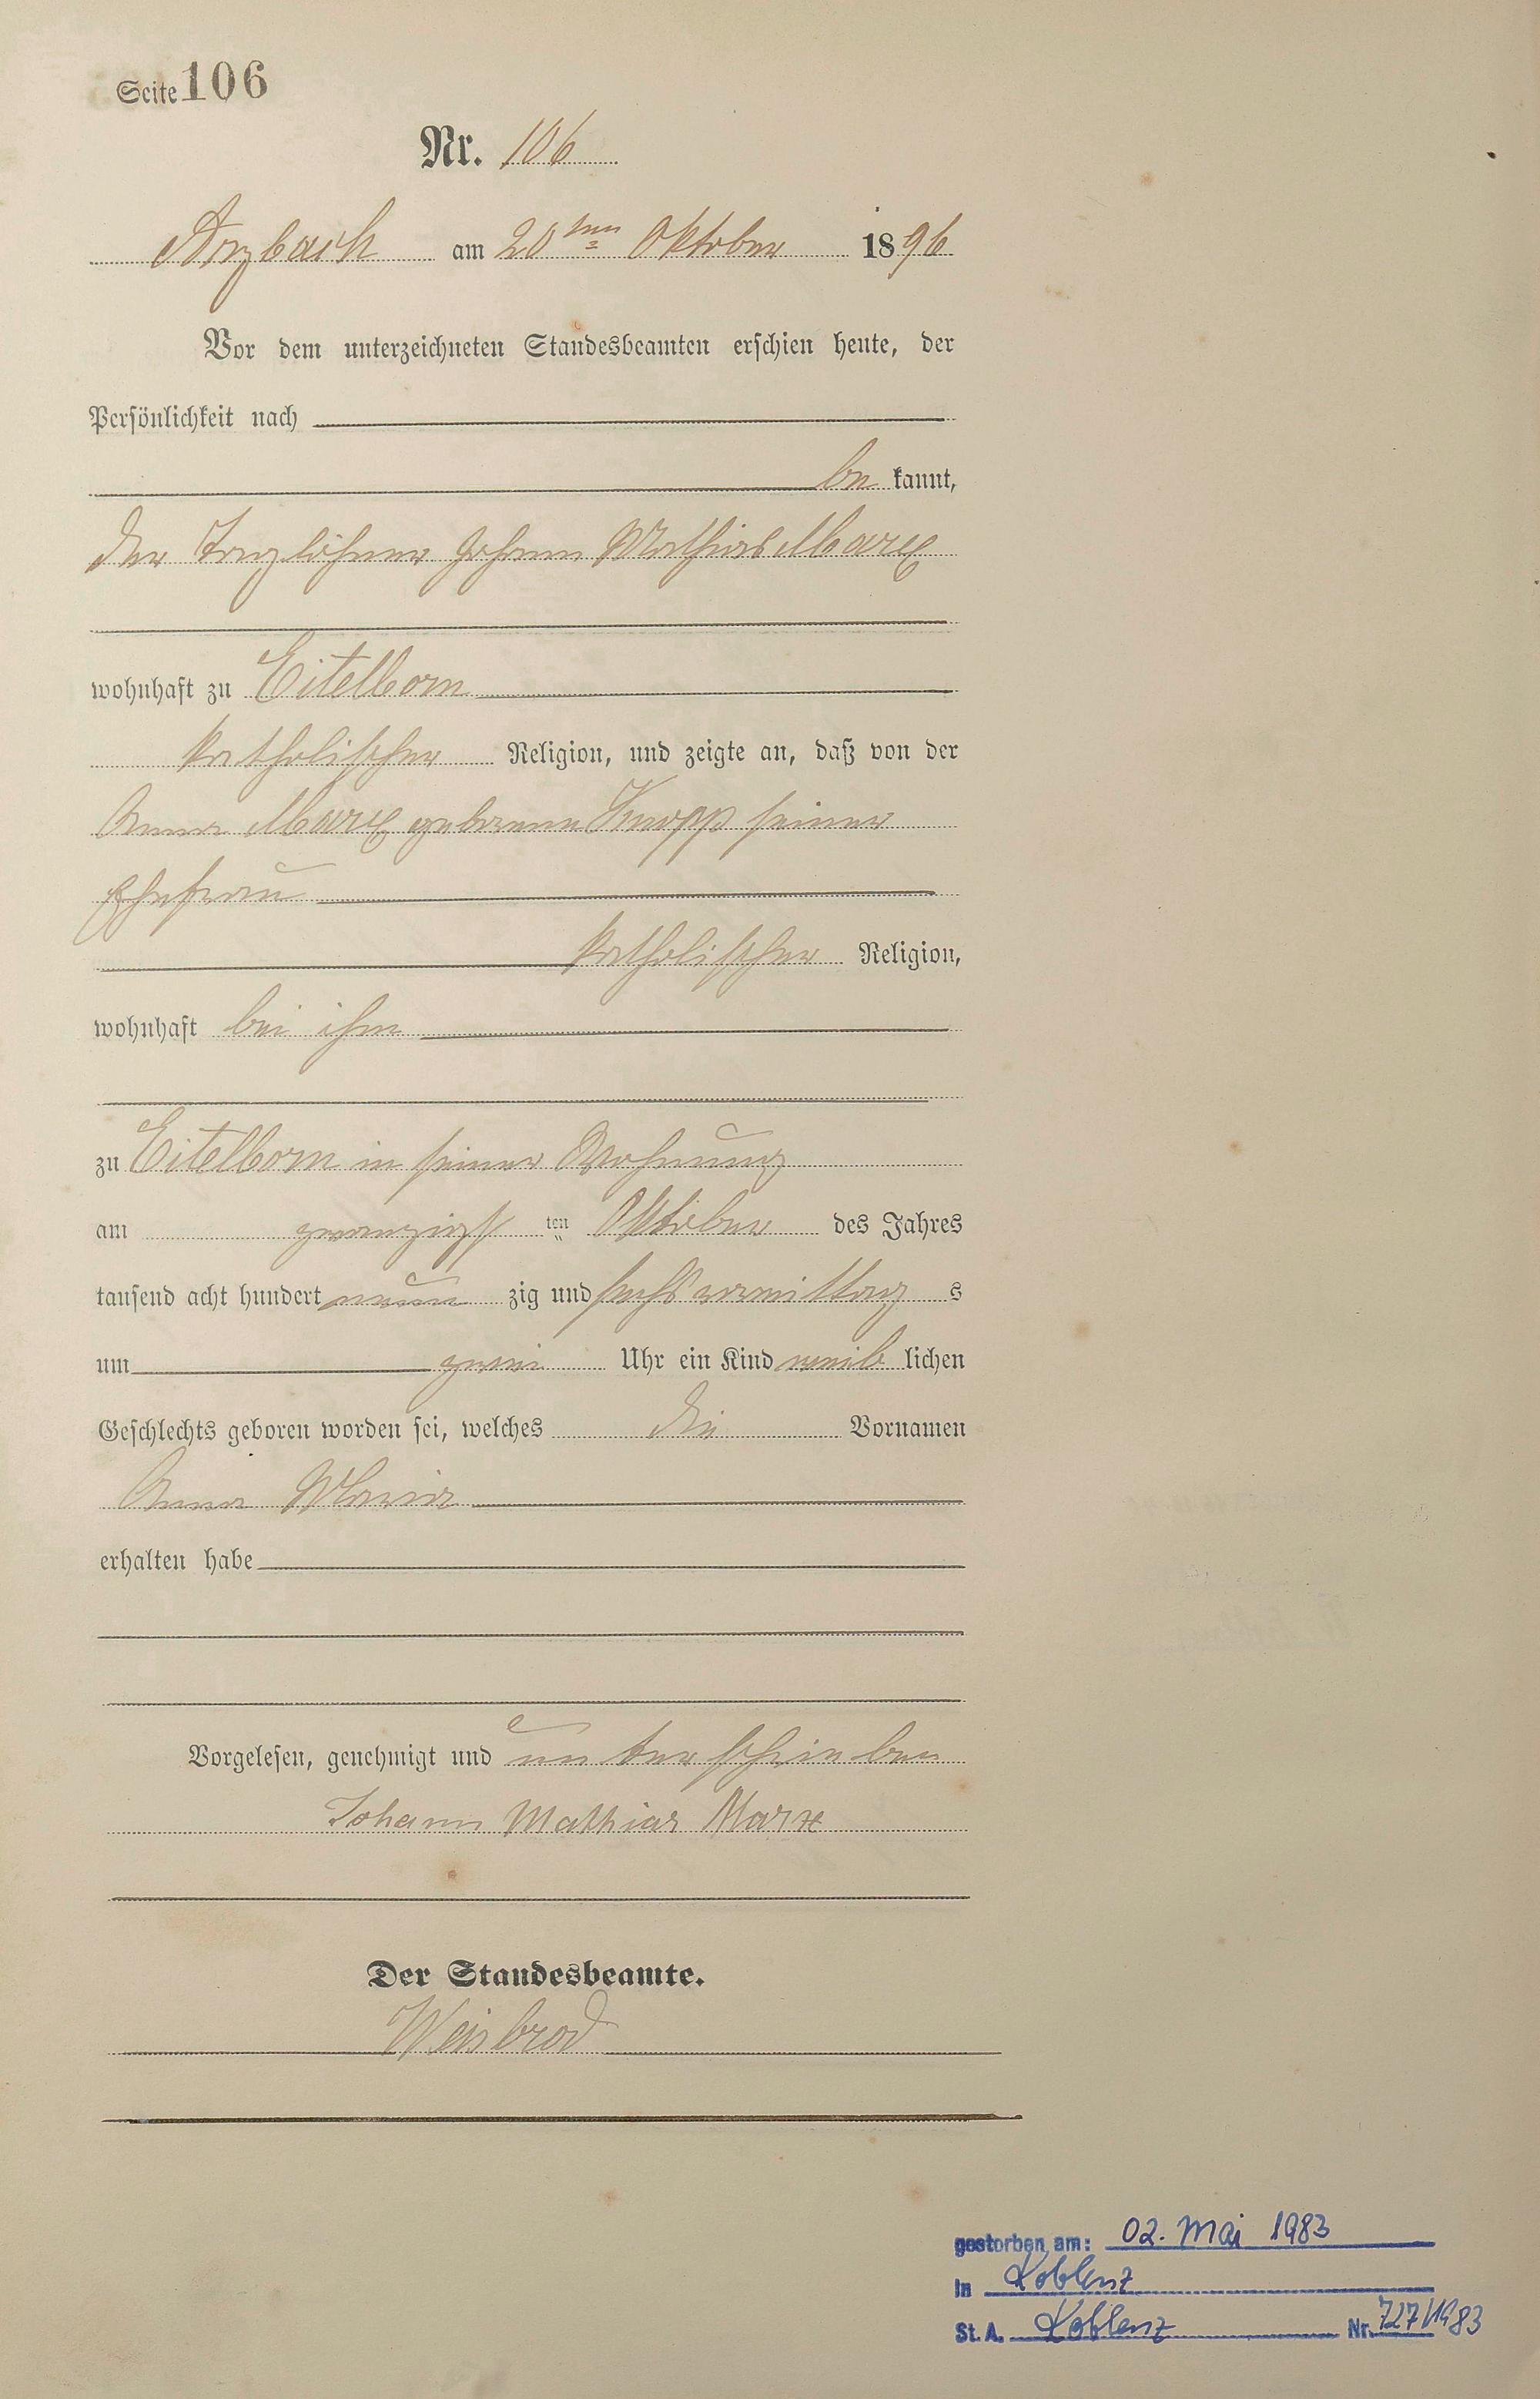 Seite 106
Nr. 106
Arzbach am 20ten Oktober 1896
Vor dem unterzeichneten Standesbeamten erschien heute, der
Persönlichkeit nach
be kannt,
der Taglöhner Johann Mathias Marx
wohnhaft zu Eitelborn
katholischer Religion, und zeigte an, daß von der
Anna Marx geborene Knopp seiner
Ehefrau
katholischer Religion,
wohnhaft bei ihm
zu Eitelborn in seiner Wohnung
am zwanzigsten Oktober des Jahres
tausend acht hundert neun zig und sechs vormittag s
um zwei Uhr ein Kind weib lichen
Geschlechts geboren worden sei, welches die Vornamen
Anna Maria
erhalten habe
Vorgelesen, genehmigt und unterschrieben
Johann Mathias Marx
Der Standesbeamte.
Weisbrod
gestorben am: 02. Mai 1983
in Koblenz
St. A. Koblenz Nr. 727/1983